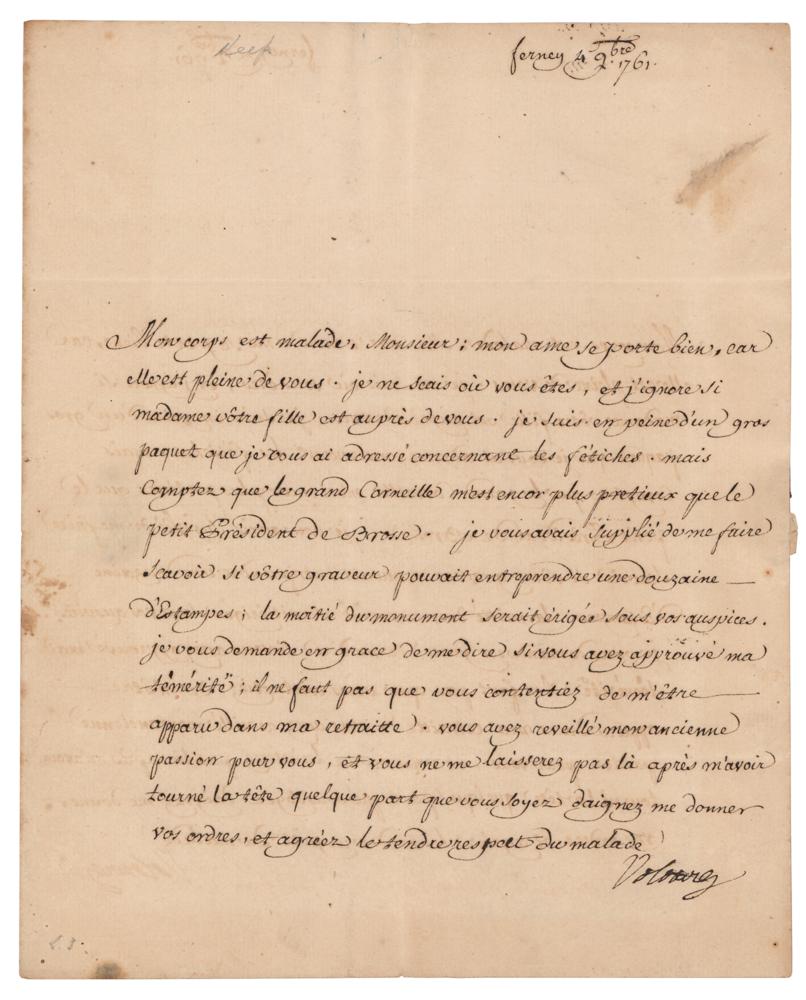 Keep
ferney 4 9.bre 1761.
Mon corps est malade, Monsieur; mon ame se porte bien, car
elle est pleine de vous. je ne scais où vous êtes, et j'ignore si
madame vôtre fille est auprès de vous. je suis en peine d'un gros
paquet que je vous ai adressé concernant les fétiches. mais
Comptez que le grand Corneille m'est encor plus pretieux que le
petit Président de Brosse. je vous avais supplié de me faire
scavoir si vôtre graveur pouvait entreprendre une douzaine
d'Estampes; la moitié du monument serait érigée sous vos auspices.
je vous demande en grace de me dire si vous avez approuvé ma
témérité; il ne faut pas que vous contentiez de m'être
apparu dans ma retraitte. vous avez reveillé mon ancienne
passion pour vous, et vous ne me laisserez pas là après m'avoir
tourné la tête quelque part que vous soyez daignez me donner
vos ordres, et agréez le tendre respect du malade
Voltaire